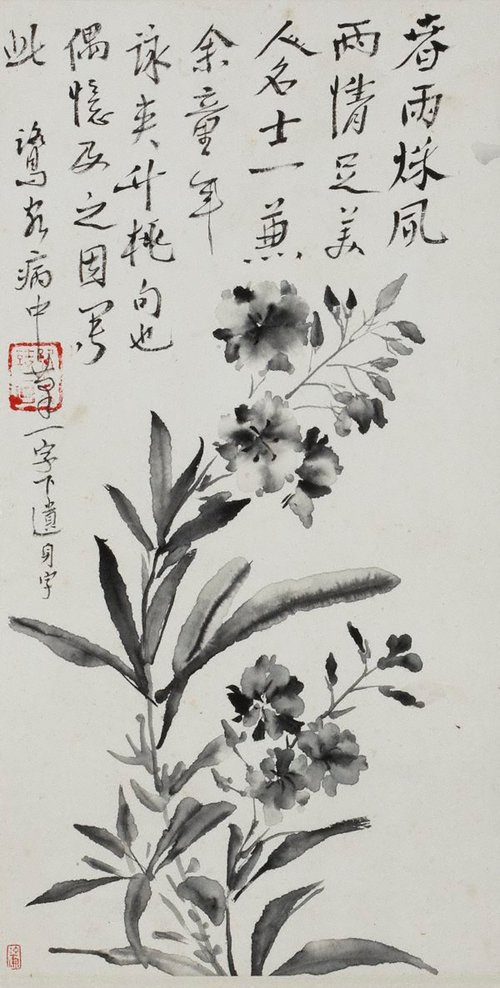 春雨秌風
兩情足美
人名士一兼
余童年
詠夾竹桃句也
偶憶及之因寫
此
病中筆
一字下遺身字